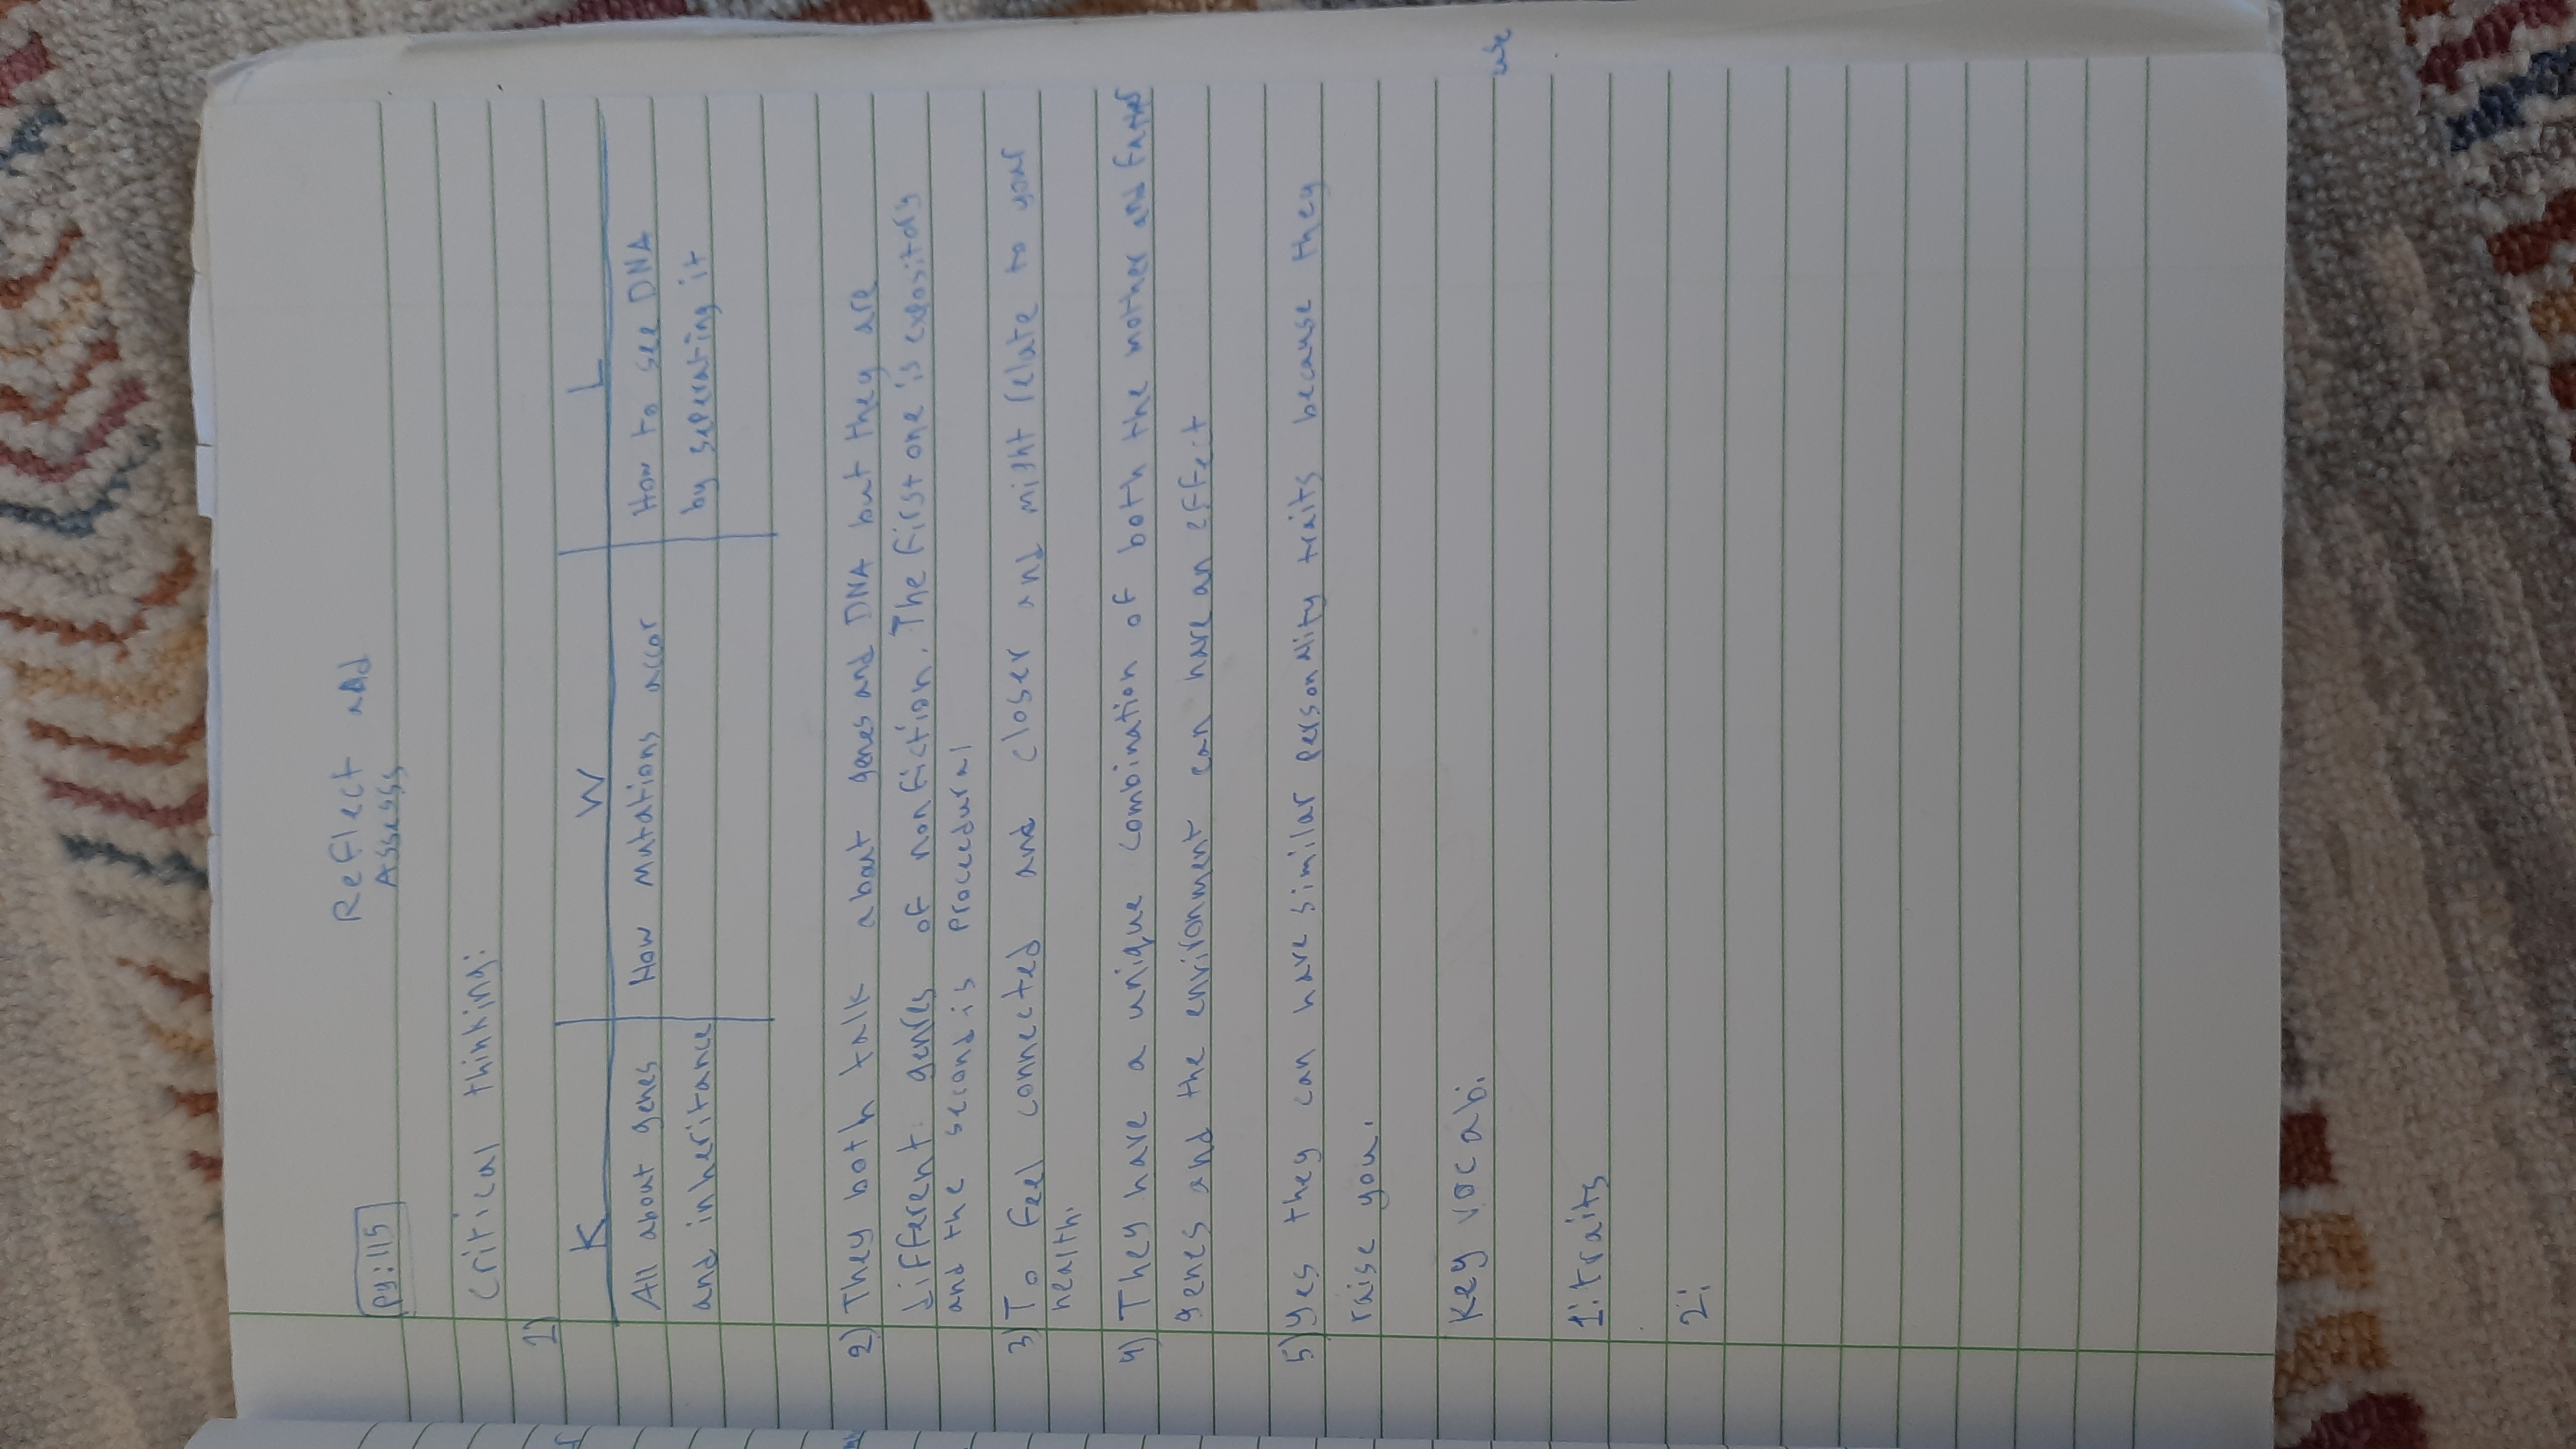 Reflect and
pg:115
Assesss
critical thinking:
1)
K W L
All about genes How Mutations accor How to see DNA
and inheritance by seperating it
2) They both talk about genes and DNA but they are
different genres of nonfiction. The first one is expository
and the second is proceedural
3) To feel connected and closer and might relate to your
health.
4) They have a unique combination of both the mother and
genes and the environment can have an effect
5) Yes they can have similar personality traits because they
raise you.
Key vocab:
1: traits
2: